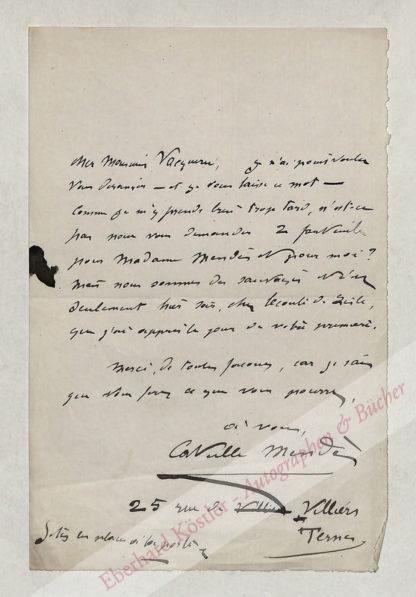 cher Monsieur Vacquerie, je n'ai pas voulu
vous déranger — et je vous laisse ce mot —
Comme je m'y prends bien trop tard, n'est-ce
pas pour vous demander 2 fauteuils
pour Madame Mendès et pour moi ?
mais nous sommes des sauvages et c'est
seulement hier soir, chez Leconte de Lisle,
que j'ai appris le jour de votre première.
Merci, de toutes façons, car je sais
que vous ferez ce que vous pourrez,
à vous,
Catulle Mendès
25 rue de Villiers
Ternes
Eberhard Köstler - Autographen & Bücher